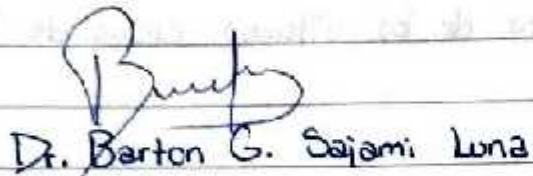 Dr. Barton G. Sajami Luna